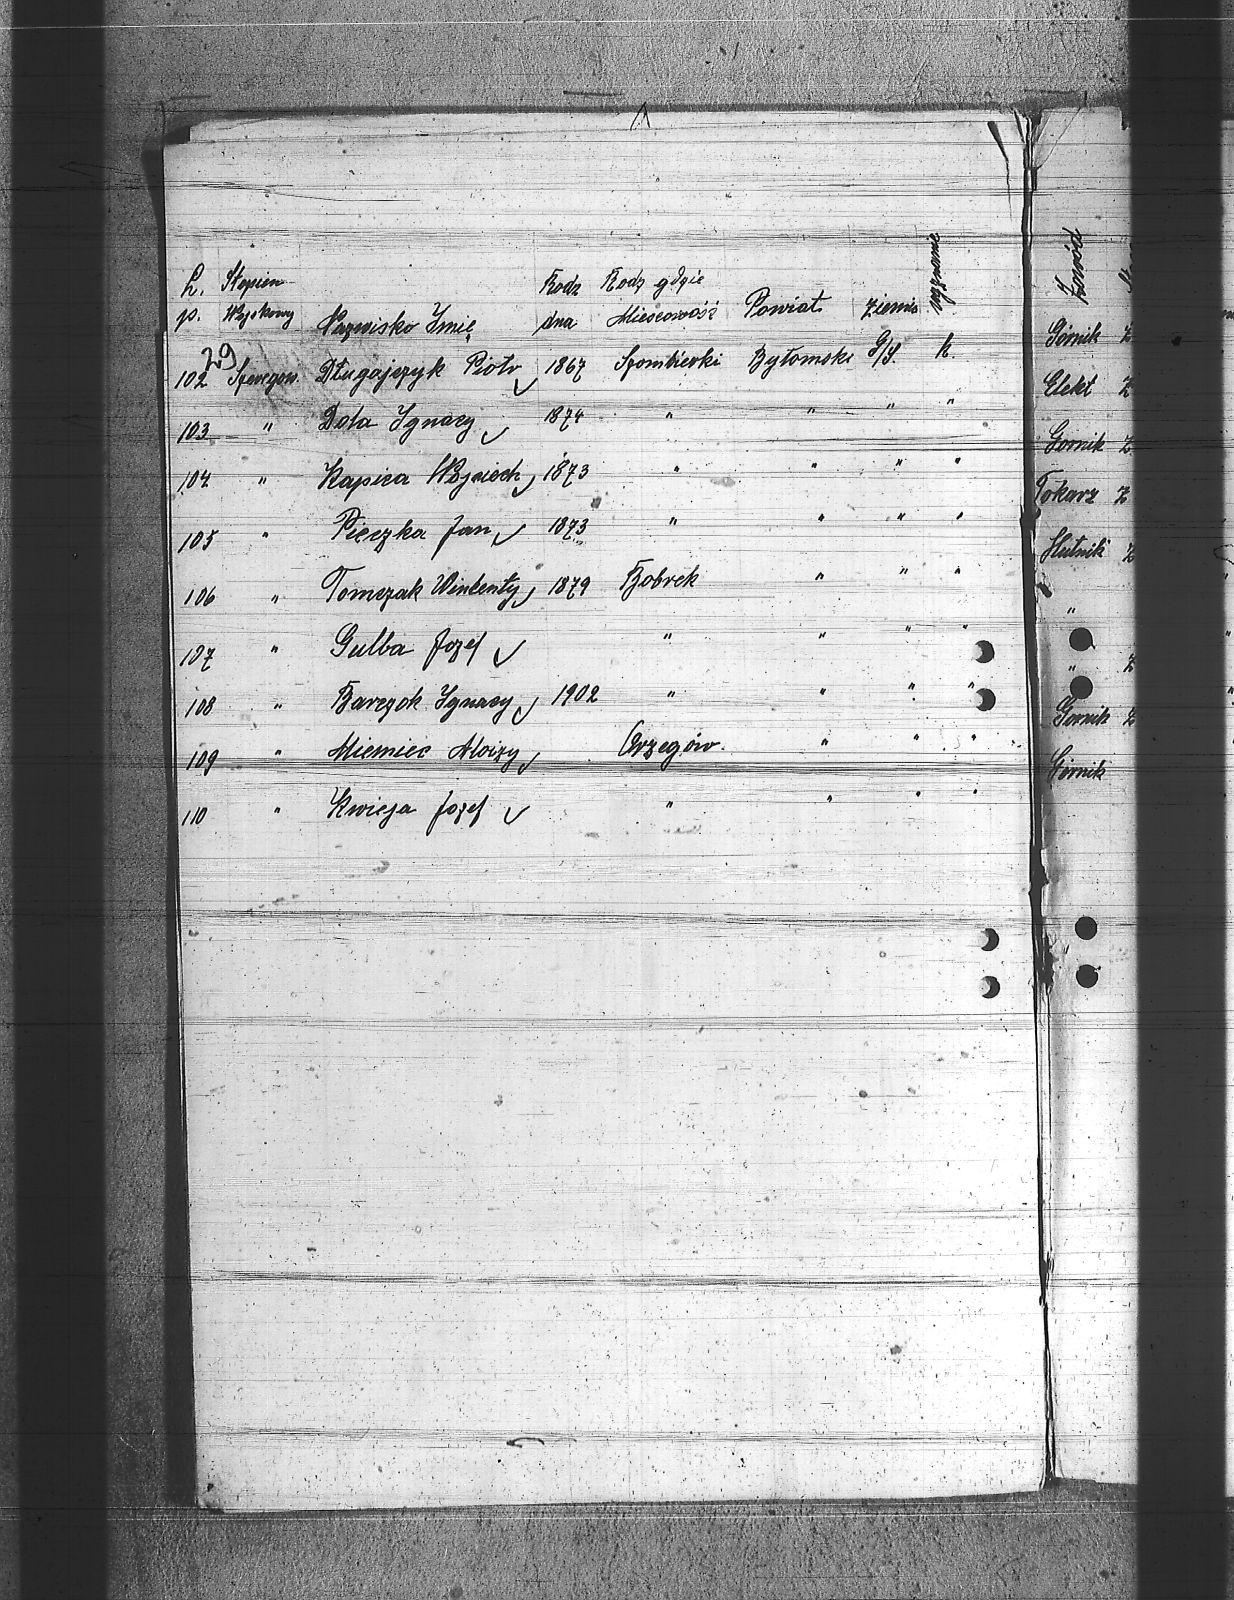 L. Stopien Rodz Rodz gdzie wyznanie Zawód
p. Wojskowy Nazwisko Imię dna Miescowość Powiat Ziemia
29
102 Szeregow. Długajczyk Piotr 1867 Szombierki Bytomski G/S. k. Górnik Z
103 " Dola Ignacy 1874 " " " " Elekt Z
104 " Kapica Wojciech 1873 " " " " Gornik Z
105 " Pieczka Jan 1873 " " " " Tokarz Z
106 " Tomczak Winlenty 1879 Bobrek " " " Hutnik Z
107 " Gulba Jozef " " " " "
108 " Barczok Ignacy 1902 " " " " " Z
109 " Niemiec Aloizy Orzegów. " " " Gornik Z
110 " Kwieja Jozef " " " " Górnik